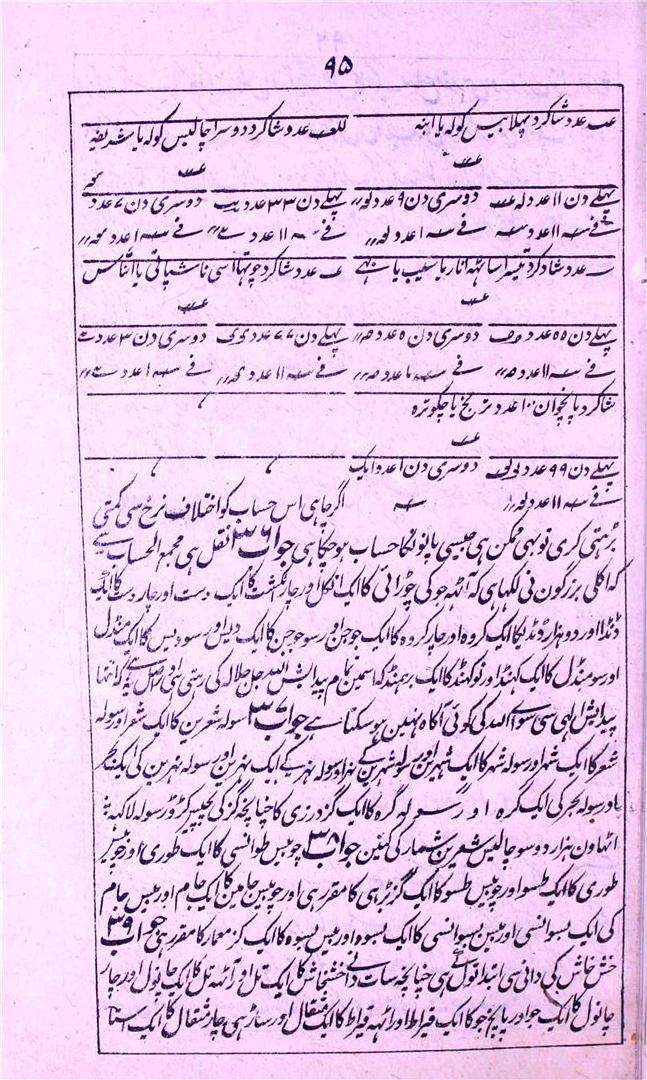 ۹۵
عدد شاگرد پہلا بیس کولہ یا انبہ عدد شاگرد دوسرا چالیس کولہ یا شریفہ
پہلے دن ۱۱ عدد دوسری دن ۹ عدد پہلے دن ۳۳ عدد دوسری دن ۷ عدد
فے ۱۱ عدد فے ۱ عدد فے ۱۱ عدد فے ۱ عدد
عدد شاگرد تیسرا ساٹھہ انار یا سیب یا بہی عدد شاگرد چوتھا اسی ناشپاتی یا انناس
پہلے دن ۵۵ عدد دوسری دن ۵ عدد پہلے دن ۷۷ عدد دوسری دن ۳ عدد
فے ۱۱ عدد فے ۱ عدد فے ۱۱ عدد فے ۱ عدد
شاگرد پانچوان ۱۰۰ عدد ترنج یا چکوترہ
پہلے دن ۹۹ عدد دوسری دن ۱ عدد ایک
فے ۱۱ عدد اگر چاہی اس حساب کو اختلاف نرخ سی کمتی
بڑہتی کری تو بہی ممکن ہی جیسی پانو لکا حساب ہو چکا ہی جواب ۳۶ نقل ہی مجمع الحساب سے
کہ اگلی بزرگون نی لکہا ہی کہ آٹہہ جو کی چوڑائی کا ایک انگل اور چار انگشت کا ایک دست اور چار دست کا ایک
ڈنڈا اور دو ہزار ڈنڈ کا ایک کروہ اور چار کروہ کا ایک جوجن اور سو جوجن کا ایک دیس اور سو دیس کا ایک منڈل
اور سو منڈل کا ایک کہنڈ اور نو کہنڈ کا ایک برہمنڈ کہ اسمین تمام پیدایش اللہ جل جلالہ کی رہتی ہی اور اصل یہ ہے کہ انتہا
پیدایش الہی سی سوائے اللہ کی کوئی آگاہ نہین ہو سکتا ہے جواب ۳۷ سولہ شعرین کا ایک شعر اور سولہ
شعر کا ایک شہر اور سولہ شہر کا ایک شہرین اور سولہ شہرین کے نہر اور سولہ نہر کے ایک نہرین اور سولہ نہرین کی ایک بحر
اور سولہ بحر کی ایک گرہ اور سولہ گرہ کا ایک گز درزی کا چنانچہ گز کی چہبیس کڑوڑ سولہ لاکہہ
اٹہاون ہزار دو سو چالیس شعرین شمار کی گئین جواب ۳۸ چوبیس طوانسی کا ایک طوری اور چوبیس
طوری کا ایک طسو اور چوبیس طسو کا ایک گز بڑہی کا مقرر ہی اور چوبیس جامین کا ایک جام اور بیس جام
کی ایک بسوانسی اور بیس بسوانسی کا ایک بسوہ اور بیس بسوہ کا ایک گز معمار کا مقرر ہی جواب ۳۹
خش خاش کی دانی سی ابتدا تول ہی چنانچہ سات دانے خشخاش کا ایک تل اور آٹہہ تل کا ایک چانول اور چار
چانول کا ایک جو اور پانچ جو کا ایک قیراط اور اٹہہ قیراط کا ایک مثقال اور ساڑہی چار مثقال کا ایک استا